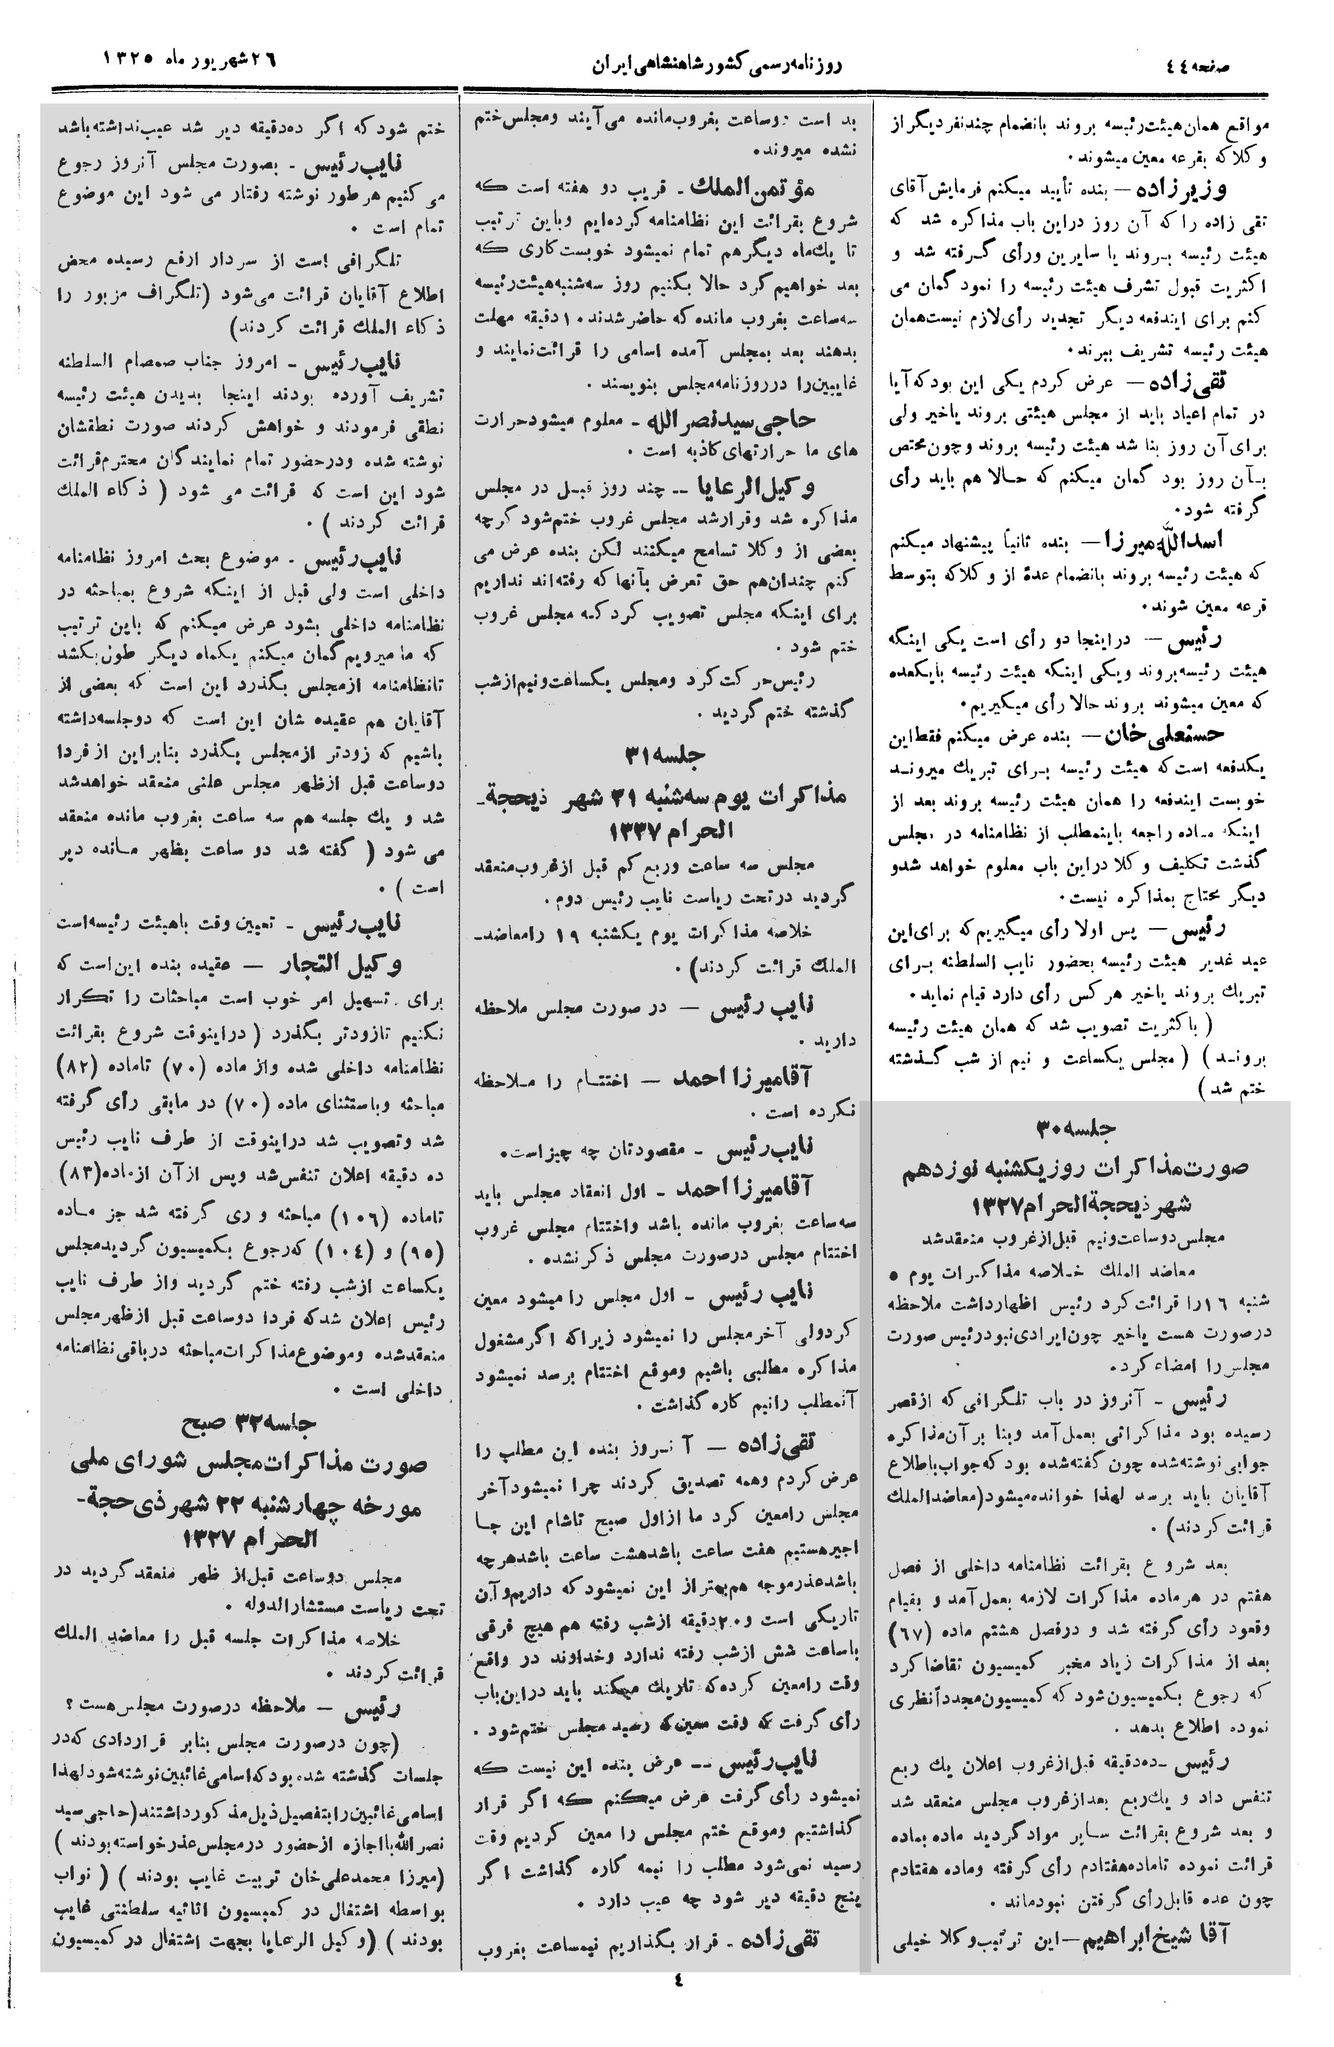 صفحه ۴۴
روزنامه رسمی کشور شاهنشاهی ایران
۲۶ شهریور ماه ۱۳۲۵
مواقع همان هیئت رئیسه بروند بانضمام چند نفر دیگر از
وکلا که بقرعه معین میشوند.
وزیرزاده — بنده تأیید میکنم فرمایش آقای
تقی زاده را که آن روز در این باب مذاکره شد که
هیئت رئیسه بروند یا سایرین و رأی گرفته شد و
اکثریت قبول تشرف هیئت رئیسه را نمود گمان می
کنم برای ایندفعه دیگر تجدید رأی لازم نیست همان
هیئت رئیسه تشریف ببرند.
تقی زاده — عرض کردم یکی این بود که آیا
در تمام اعیاد باید از مجلس هیئتی بروند یا خیر ولی
برای آن روز بنا شد هیئت رئیسه بروند و چون مختص
بآن روز بود گمان میکنم که حالا هم باید رأی
گرفته شود.
اسدالله میرزا — بنده ثانیاً پیشنهاد میکنم
که هیئت رئیسه بروند بانضمام عدهٔ از وکلا که بتوسط
قرعه معین شوند.
رئیس — در اینجا دو رأی است یکی اینکه
هیئت رئیسه بروند و یکی اینکه هیئت رئیسه با یکعده
که معین میشوند بروند حالا رأی میگیریم.
حسنعلی خان — بنده عرض میکنم فقط این
یکدفعه است که هیئت رئیسه برای تبریك میروند
خوبست ایندفعه را همان هیئت رئیسه بروند بعد از
اینکه ماده راجعه باینمطلب از نظامنامه در مجلس
گذشت تکلیف وکلا در این باب معلوم خواهد شد و
دیگر محتاج بمذاکره نیست.
رئیس — پس اولا رأی میگیریم که برای این
عید غدیر هیئت رئیسه بحضور نایب السلطنه برای
تبریك بروند یا خیر هر کس رأی دارد قیام نماید.
( باکثریت تصویب شد که همان هیئت رئیسه
بروند ) ( مجلس یکساعت و نیم از شب گذشته
ختم شد )
جلسه ۳۰
صورت مذاکرات روز یکشنبه نوزدهم
شهر ذیحجة الحرام ۱۳۲۷
مجلس دو ساعت و نیم قبل از غروب منعقد شد
معاضد الملك خلاصه مذاکرات یوم ۵
شنبه ۱۶ را قرائت کرد رئیس اظهار داشت ملاحظه
در صورت هست یا خیر چون ایرادی نبود رئیس صورت
مجلس را امضاء کرد.
رئیس - آنروز در باب تلگرافی که از قصر
رسیده بود مذاکراتی بعمل آمد و بنا بر آن مذاکره
جوابی نوشته شده چون گفته شده بود که جواب باطلاع
آقایان باید برسد لهذا خوانده میشود (معاضد الملك
قرائت کردند).
بعد شروع بقرائت نظامنامه داخلی از فصل
هفتم در هر ماده مذاکرات لازمه بعمل آمد و بقیام
و قعود رأی گرفته شد و در فصل هشتم ماده (۶۷)
بعد از مذاکرات زیاد مخبر کمیسیون تقاضا کرد
که رجوع بکمیسیون شود که کمیسیون مجدداً نظری
نموده اطلاع بدهد.
رئیس - ده دقیقه قبل از غروب اعلان یك ربع
تنفس داد و یك ربع بعد از غروب مجلس منعقد شد
و بعد شروع بقرائت سایر مواد گردید ماده بماده
قرائت نموده تا ماده هفتادم رأی گرفته و ماده هفتادم
چون عده قابل رأی گرفتن نبود ماند.
آقا شیخ ابراهیم — این ترتیب وکلا خیلی
بد است دو ساعت بغروب مانده می آیند و مجلس ختم
نشده میروند.
مؤتمن الملك - قریب دو هفته است که
شروع بقرائت این نظامنامه کرده ایم و باین ترتیب
تا یك ماه دیگر هم تمام نمیشود خوبست کاری که
بعد خواهیم کرد حالا بکنیم روز سه شنبه هیئت رئیسه
سه ساعت بغروب مانده که حاضر شدند ۱۰ دقیقه مهلت
بدهند بعد بمجلس آمده اسامی را قرائت نمایند و
غایبین را در روزنامه مجلس بنویسند.
حاجی سید نصر الله - معلوم میشود حرارت
های ما حرارتهای کاذبه است.
وکیل الرعایا — چند روز قبل در مجلس
مذاکره شد و قرار شد مجلس غروب ختم شود گرچه
بعضی از وکلا تسامح میکنند لکن بنده عرض می
کنم چندان هم حق تعرض بآنها که رفته اند نداریم
برای اینکه مجلس تصویب کرد که مجلس غروب
ختم شود.
رئیس حرکت کرد و مجلس یکساعت و نیم از شب
گذشته ختم گردید.
جلسه ۳۱
مذاکرات یوم سه شنبه ۲۱ شهر ذیحجة-
الحرام ۱۳۲۷
مجلس سه ساعت و ربع کم قبل از غروب منعقد
گردید در تحت ریاست نایب رئیس دوم.
خلاصه مذاکرات یوم یکشنبه ۱۹ را معاضد-
الملك قرائت کردند).
نایب رئیس — در صورت مجلس ملاحظه
دارید.
آقا میرزا احمد — اختتام را ملاحظه
نکرده است.
نایب رئیس - مقصودتان چه چیز است.
آقا میرزا احمد - اول انعقاد مجلس باید
سه ساعت بغروب مانده باشد و اختتام مجلس غروب
اختتام مجلس در صورت مجلس ذکر نشده.
نایب رئیس - اول مجلس را میشود معین
کرد ولی آخر مجلس را نمیشود زیرا که اگر مشغول
مذاکره مطلبی باشیم و موقع اختتام برسد نمیشود
آنمطلب را نیم کاره گذاشت.
تقی زاده — آنروز بنده این مطلب را
عرض کردم و همه تصدیق کردند چرا نمیشود آخر
مجلس را معین کرد ما از اول صبح تا شام این جا
اجیر هستیم هفت ساعت باشد هشت ساعت باشد هر چه
باشد عذر موجه هم بهتر از این نمیشود که داریم و آن
تاریکی است و ۲۰ دقیقه از شب رفته هم هیچ فرقی
با ساعت شش از شب رفته ندارد و خداوند در واقع
وقت را معین کرده که تاریك میکند باید در این باب
رأی گرفت که وقت معین که رسید مجلس ختم شود.
نایب رئیس — عرض بنده این نیست که
نمیشود رأی گرفت عرض میکنم که اگر قرار
گذاشتیم و موقع ختم مجلس را معین کردیم وقت
رسید نمی شود مطلب را نیمه کاره گذاشت اگر
پنج دقیقه دیر شود چه عیب دارد.
تقی زاده - قرار بگذاریم نیمساعت بغروب
ختم شود که اگر ده دقیقه دیر شد عیب نداشته باشد
نایب رئیس - بصورت مجلس آنروز رجوع
می کنیم هر طور نوشته رفتار می شود این موضوع
تمام است.
تلگرافی است از سردار ارفع رسیده محض
اطلاع آقایان قرائت می شود (تلگراف مزبور را
ذکاء الملك قرائت کردند)
نایب رئیس - امروز جناب صمصام السلطنه
تشریف آورده بودند اینجا بدیدن هیئت رئیسه
نطقی فرمودند و خواهش کردند صورت نطقشان
نوشته شده و در حضور تمام نمایندگان محترم قرائت
شود این است که قرائت می شود ( ذکاء الملك
قرائت کردند ).
نایب رئیس - موضوع بحث امروز نظامنامه
داخلی است ولی قبل از اینکه شروع بمباحثه در
نظامنامه داخلی بشود عرض میکنم که باین ترتیب
که ما میرویم گمان میکنم یکماه دیگر طول بکشد
تا نظامنامه از مجلس بگذرد این است که بعضی از
آقایان هم عقیده شان این است که دو جلسه داشته
باشیم که زودتر از مجلس بگذرد بنابراین از فردا
دو ساعت قبل از ظهر مجلس علنی منعقد خواهد شد
شد و یك جلسه هم سه ساعت بغروب مانده منعقد
می شود ( گفته شد دو ساعت بظهر مانده دیر
است ).
نایب رئیس - تعیین وقت با هیئت رئیسه است
وکیل التجار — عقیده بنده این است که
برای تسهیل امر خوب است مباحثات را تکرار
نکنیم تا زودتر بگذرد ( در اینوقت شروع بقرائت
نظامنامه داخلی شده و از ماده (۷۰) تا ماده (۸۲)
مباحثه و باستثنای ماده (۷۰) در مابقی رأی گرفته
شد و تصویب شد در اینوقت از طرف نایب رئیس
ده دقیقه اعلان تنفس شد و پس از آن از ماده (۸۳)
تا ماده (۱۰۶) مباحثه و ری گرفته شد جز ماده
(۹۵) و (۱۰۴) که رجوع بکمیسیون گردید مجلس
یکساعت از شب رفته ختم گردید و از طرف نایب
رئیس اعلان شد که فردا دو ساعت قبل از ظهر مجلس
منعقد شده و موضوع مذاکرات مباحثه در باقی نظامنامه
داخلی است.
جلسه ۳۲ صبح
صورت مذاکرات مجلس شورای ملی
مورخه چهارشنبه ۲۲ شهر ذی حجة-
الحرام ۱۳۲۷
مجلس دو ساعت قبل از ظهر منعقد گردید در
تحت ریاست مستشار الدوله.
خلاصه مذاکرات جلسه قبل را معاضد الملك
قرائت کردند.
رئیس — ملاحظه در صورت مجلس هست ؟
(چون در صورت مجلس بنابر قراردادی که در
جلسات گذشته شده بود که اسامی غائبین نوشته شود لهذا
اسامی غائبین را بتفصیل ذیل مذکور داشتند (حاجی سید
نصر الله با اجازه از حضور در مجلس عذر خواسته بودند )
(میرزا محمد علی خان تربیت غایب بودند ) ( نواب
بواسطه اشتغال در کمیسیون اثاثیه سلطنتی غایب
بودند ) (وکیل الرعایا بجهت اشتغال در کمیسیون
۴